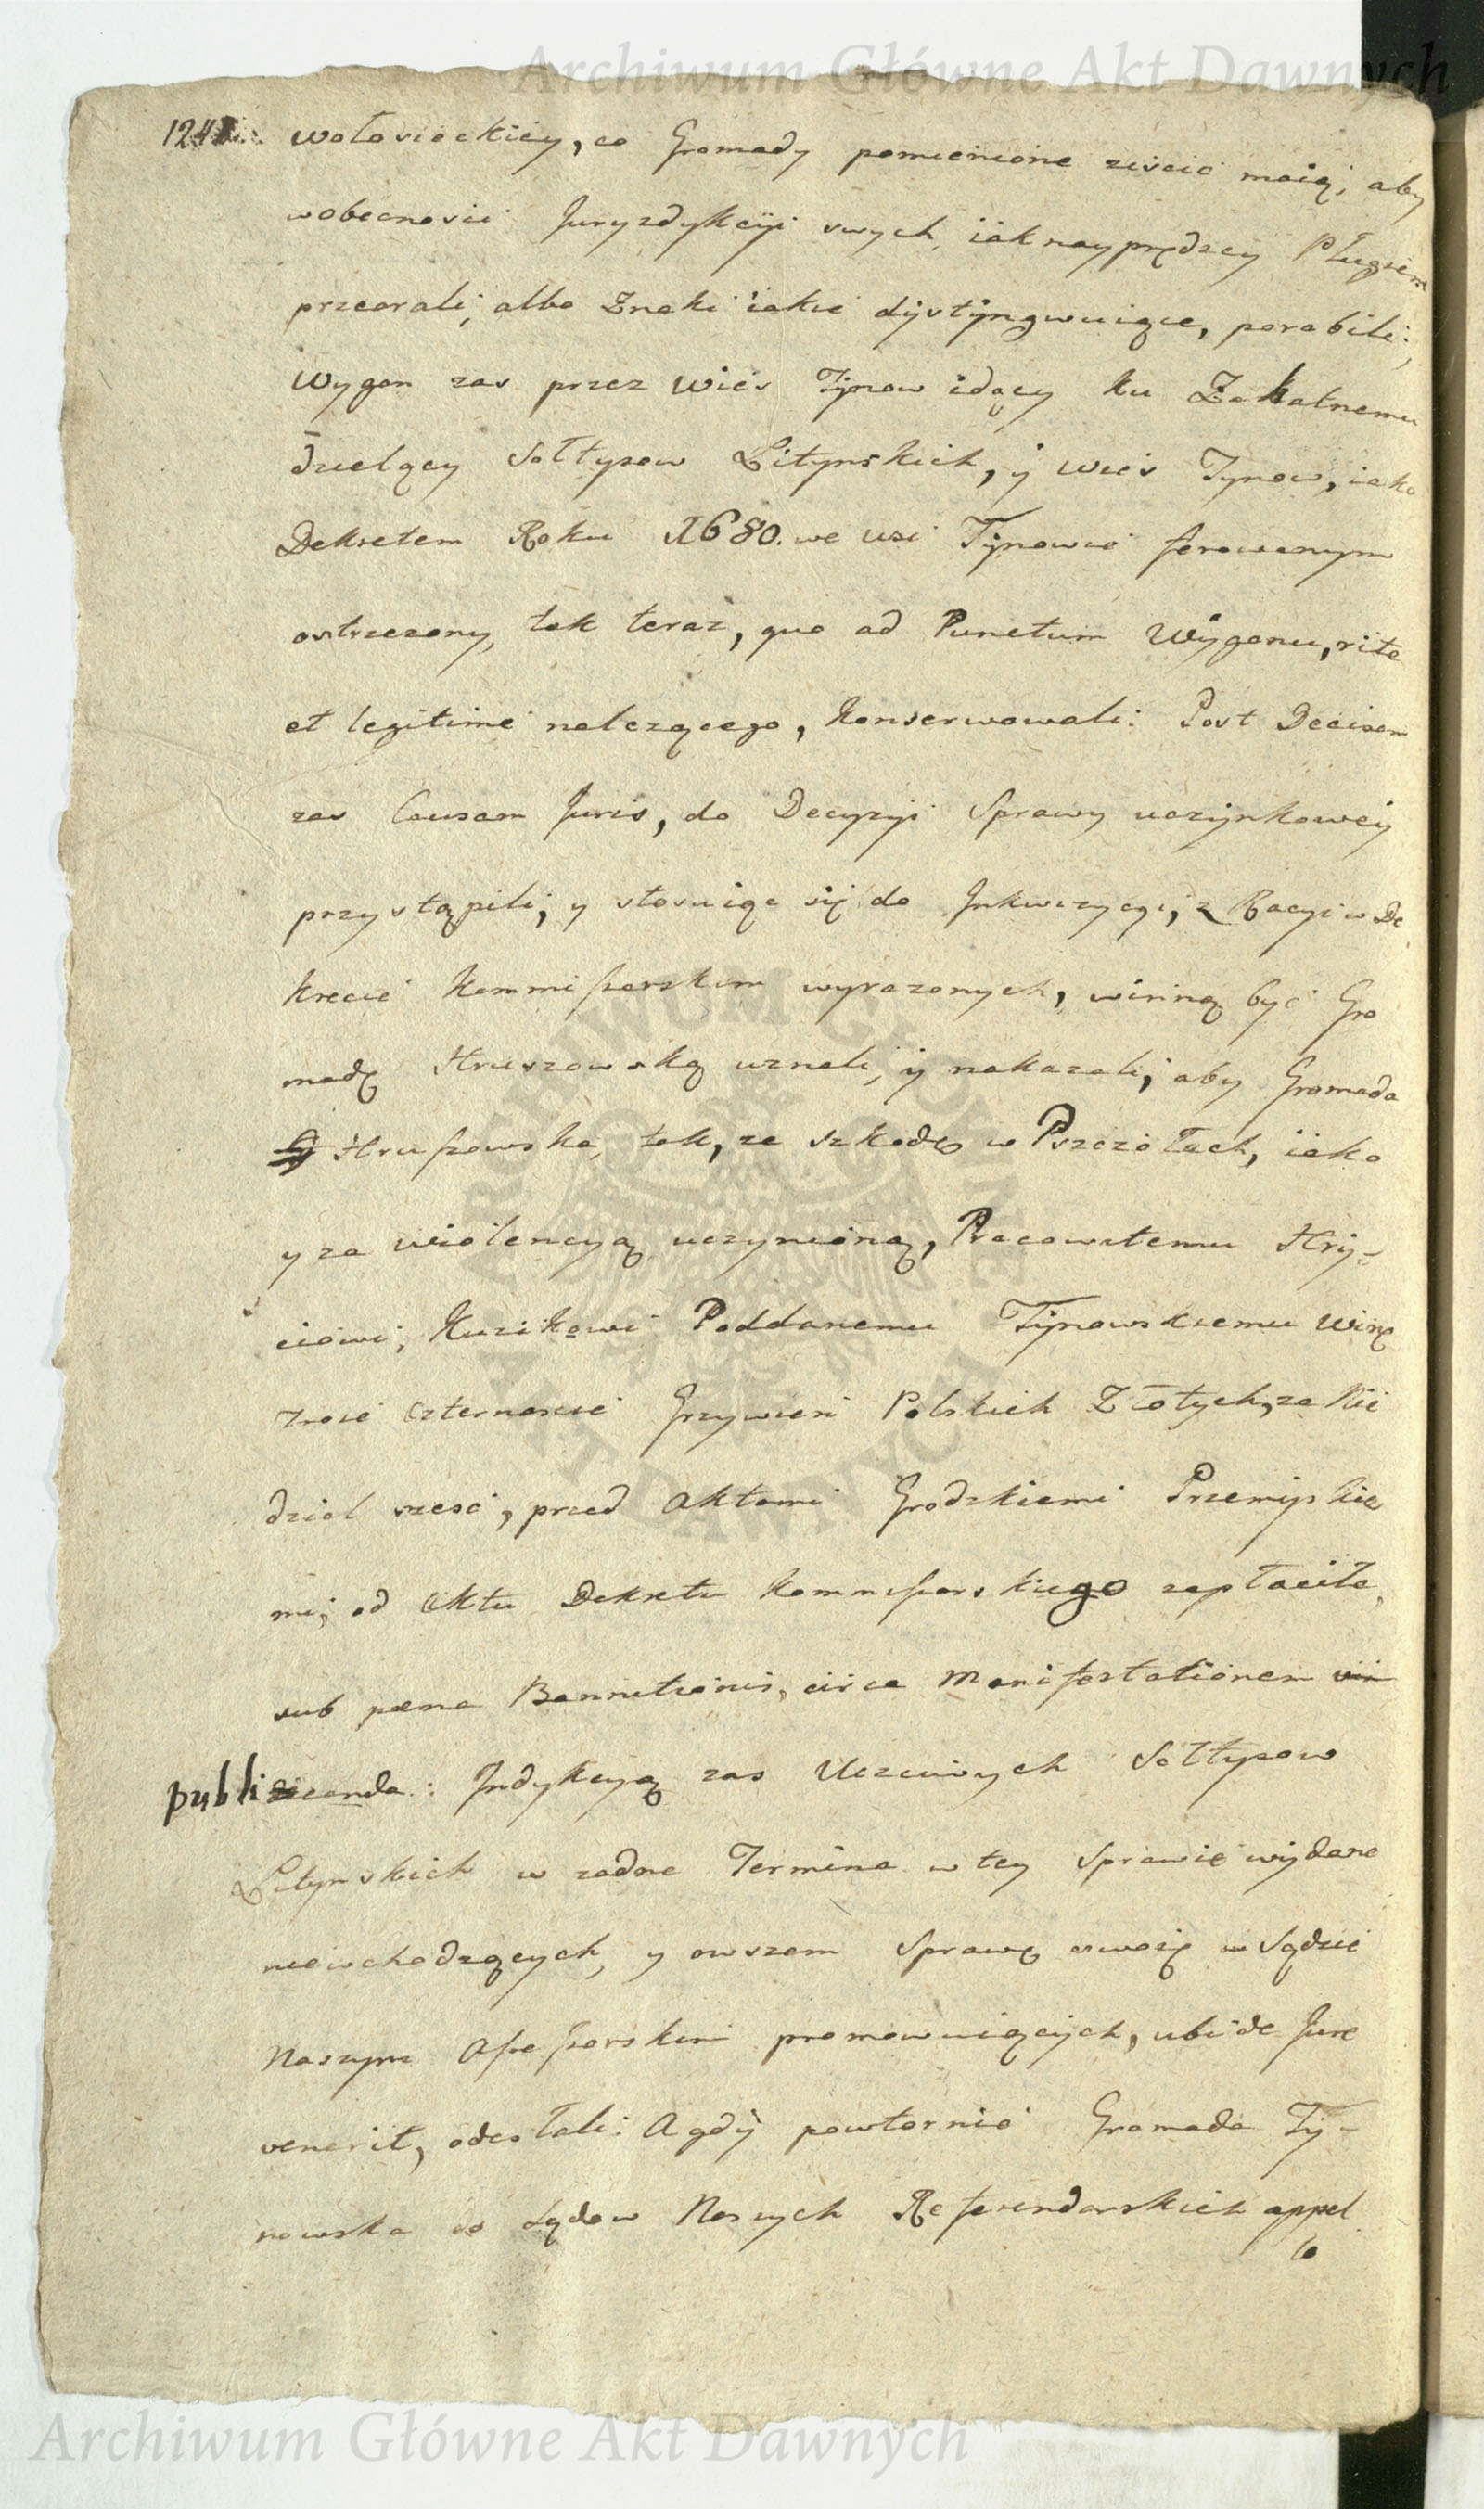 Archiwum Główne Akt Dawnych
wołosieckiey, co Gromady pomienione ziscic maią, aby
w obecnosci Juryzdykcyi swych iak nayprędzey Pługiem
przeorali, albo Znaki iakie dystyngwuiące, porobili;
Wygon zas przez Wieś Tynow idący ku Zakatnemu
dzielący Sołtysow Litynskich, y Wieś Tynow, iako
Dekretem Roku 1680. we wsi Tynowie ferowanym
ostrzezony, tak teraz, quo ad Punctum Wygonu, rite
et legitime nalezącego, konserwowali: Post Decisam
zas Causam Juris, do Decyzyi Sprawy uczynkowey
przystąpili, y stosuiąc się do Inkwizycyi, z Racyi w De
krecie Kommissarskim wyrazonych, winną być Gro
madę Hruszowską uznali, y nakazali, aby Gromada
Hrussowska, tak, za szkodę w Pszczołach, iako
y za wiolencyą uczynioną, Pracowitemu Hry-
ciowi, Kuzikowi Poddanemu Tynowskiemu Winę
Trzie czternascie Grzywien Polskich Złotych, za Nie
dziel szesć, przed Aktami Grodzkiemi Przemyskie
mi, od Aktu Dekretu Kommissarskiego zapłaciła,
sub pœna Bannitionis, circa Manifestationem
publicanda: Indykcyą zas Uczciwych Sołtysow
Litynskich w zadne Termina w tey Sprawie wydane
niewchodzących, y owszem Sprawę swoię w Sądzie
Naszym Assessorskim promowuiących, ubi de Jure
venerit, odesłali: A gdy powtornie Gromada Ty-
nowska do Sądow Naszych Referendarskich appel
lo
Archiwum Główne Akt Dawnych